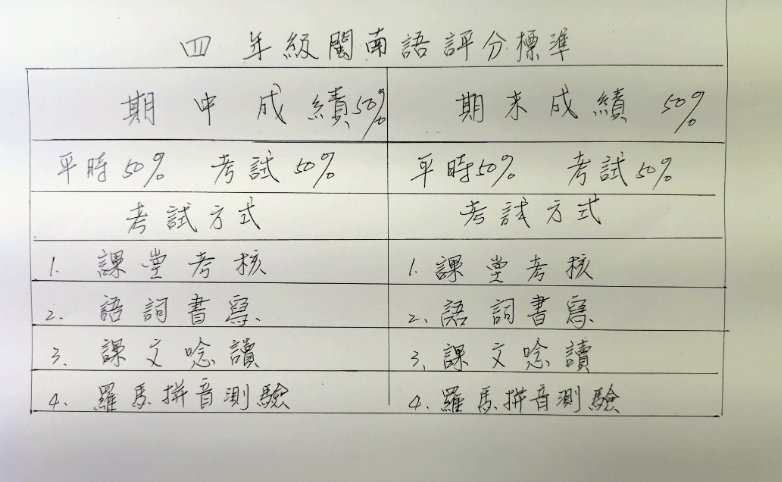 四年級閩南語評分標準
期中成績50% 期末成績 50%
平時50% 考試50% 平時50% 考試50%
考試方式 考試方式
1. 課堂考核 1. 課堂考核
2. 語詞書寫 2. 語詞書寫
3. 課文唸讀 3. 課文唸讀
4. 羅馬拼音測驗 4. 羅馬拼音測驗